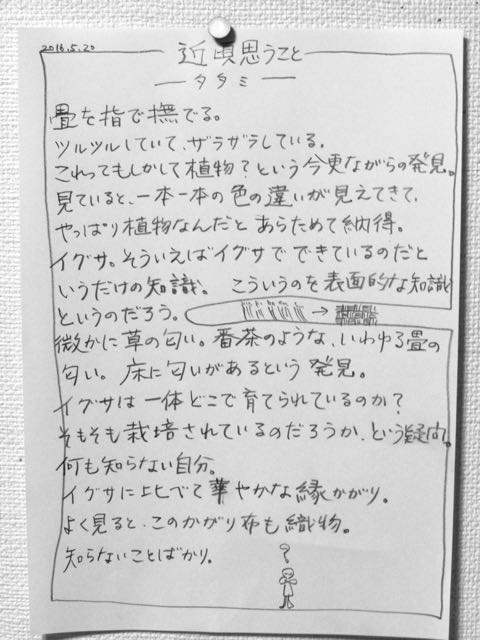 2016.5.20
近頃思うこと
―タタミ―
畳を指で撫でる。
ツルツルしていて、ザラザラしている。
これってもしかして植物？という今更ながらの発見。
見ていると、一本一本の色の違いが見えてきて、
やっぱり植物なんだとあらためて納得。
イグサ。そういえばイグサでできているのだと
いうだけの知識。 こういうのを表面的な知識
というのだろう。 →
微かに草の匂い。番茶のような、いわゆる畳の
匂い。床に匂いがあるという発見。
イグサは一体どこで育てられているのか？
そもそも栽培されているのだろうか、という疑問。
何も知らない自分。
イグサに比べて華やかな縁かがり。
よく見ると、このかがり布も織物。
知らないことばかり。
?